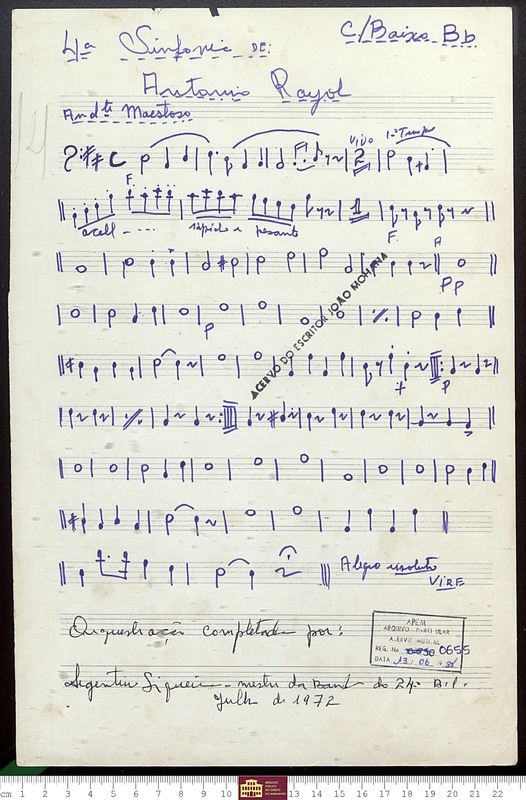 C/Baixo Bb
4ª Sinfonia DE:
Antonio Rayol
And.te Maestoso
Vivo 1º Tempo
2
F.
1
acell - - - rápido e pesante
F.
A
Pp
P
P
Alegro resoluto
ViRE
ACERVO DO ESCRITOR JOÃO MOHANA
Orquestração completada por:
APEM
ARQUIVO PARTICULAR
ACERVO MUSICAL
REG. No. 0655
DATA 13 / 06 / 19
mestre da Banda do 24º B.C.
Julho de 1972
cm 1 2 3 4 5 6 7 8 9 10 11 13 14 15 16 17 18 19 20 21 22